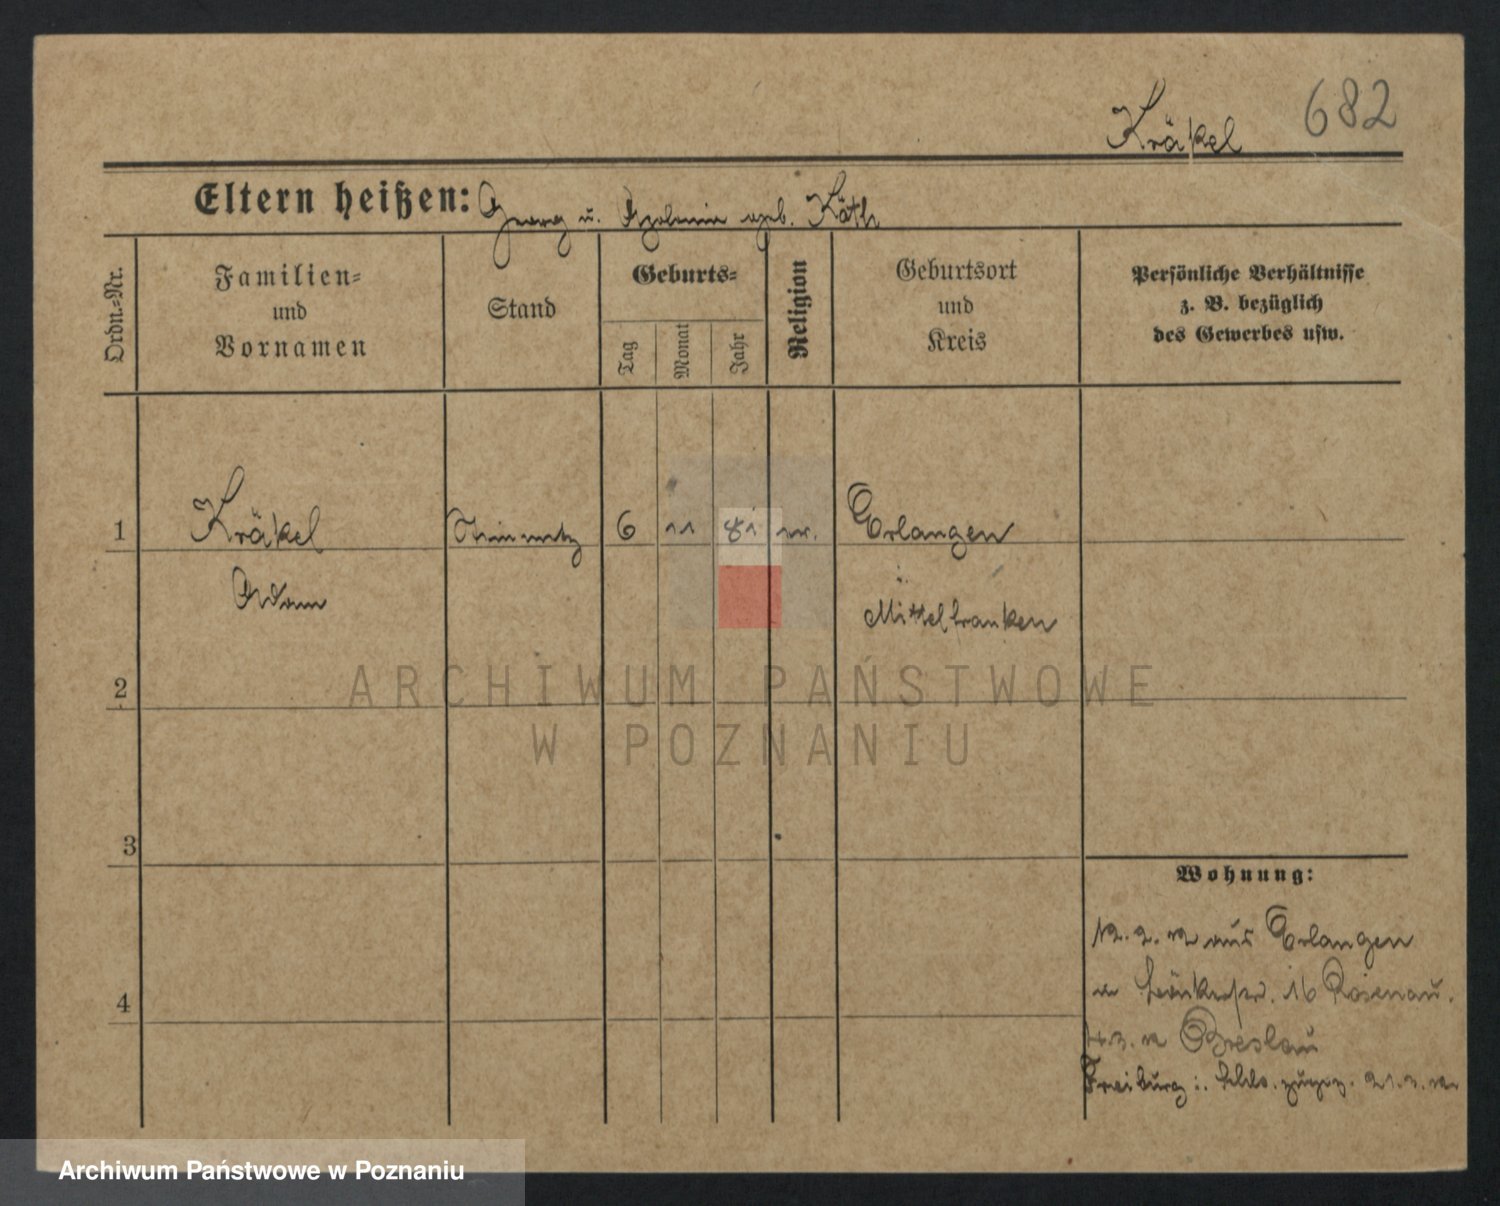 Kräkel 682
Eltern heißen: Georg u. geb. Käth
Ordn.=Nr.
Familien=
und
Vornamen
Stand
Geburts=
Tag
Monat
Jahr
Religion
Geburtsort
und
Kreis
Persönliche Verhältnisse
z. B. bezüglich
des Gewerbes usw.
1 Kräkel Steinmetz 6 11 81 Erlangen
Adam Mittelfranken
2
3
4
Wohnung:
12. 2. 12 aus Erlangen
16 Rosenau.
Breslau
Freiburg i. Schles. 21. 3. 12
ARCHIWUM PAŃSTWOWE
W POZNANIU
Archiwum Państwowe w Poznaniu